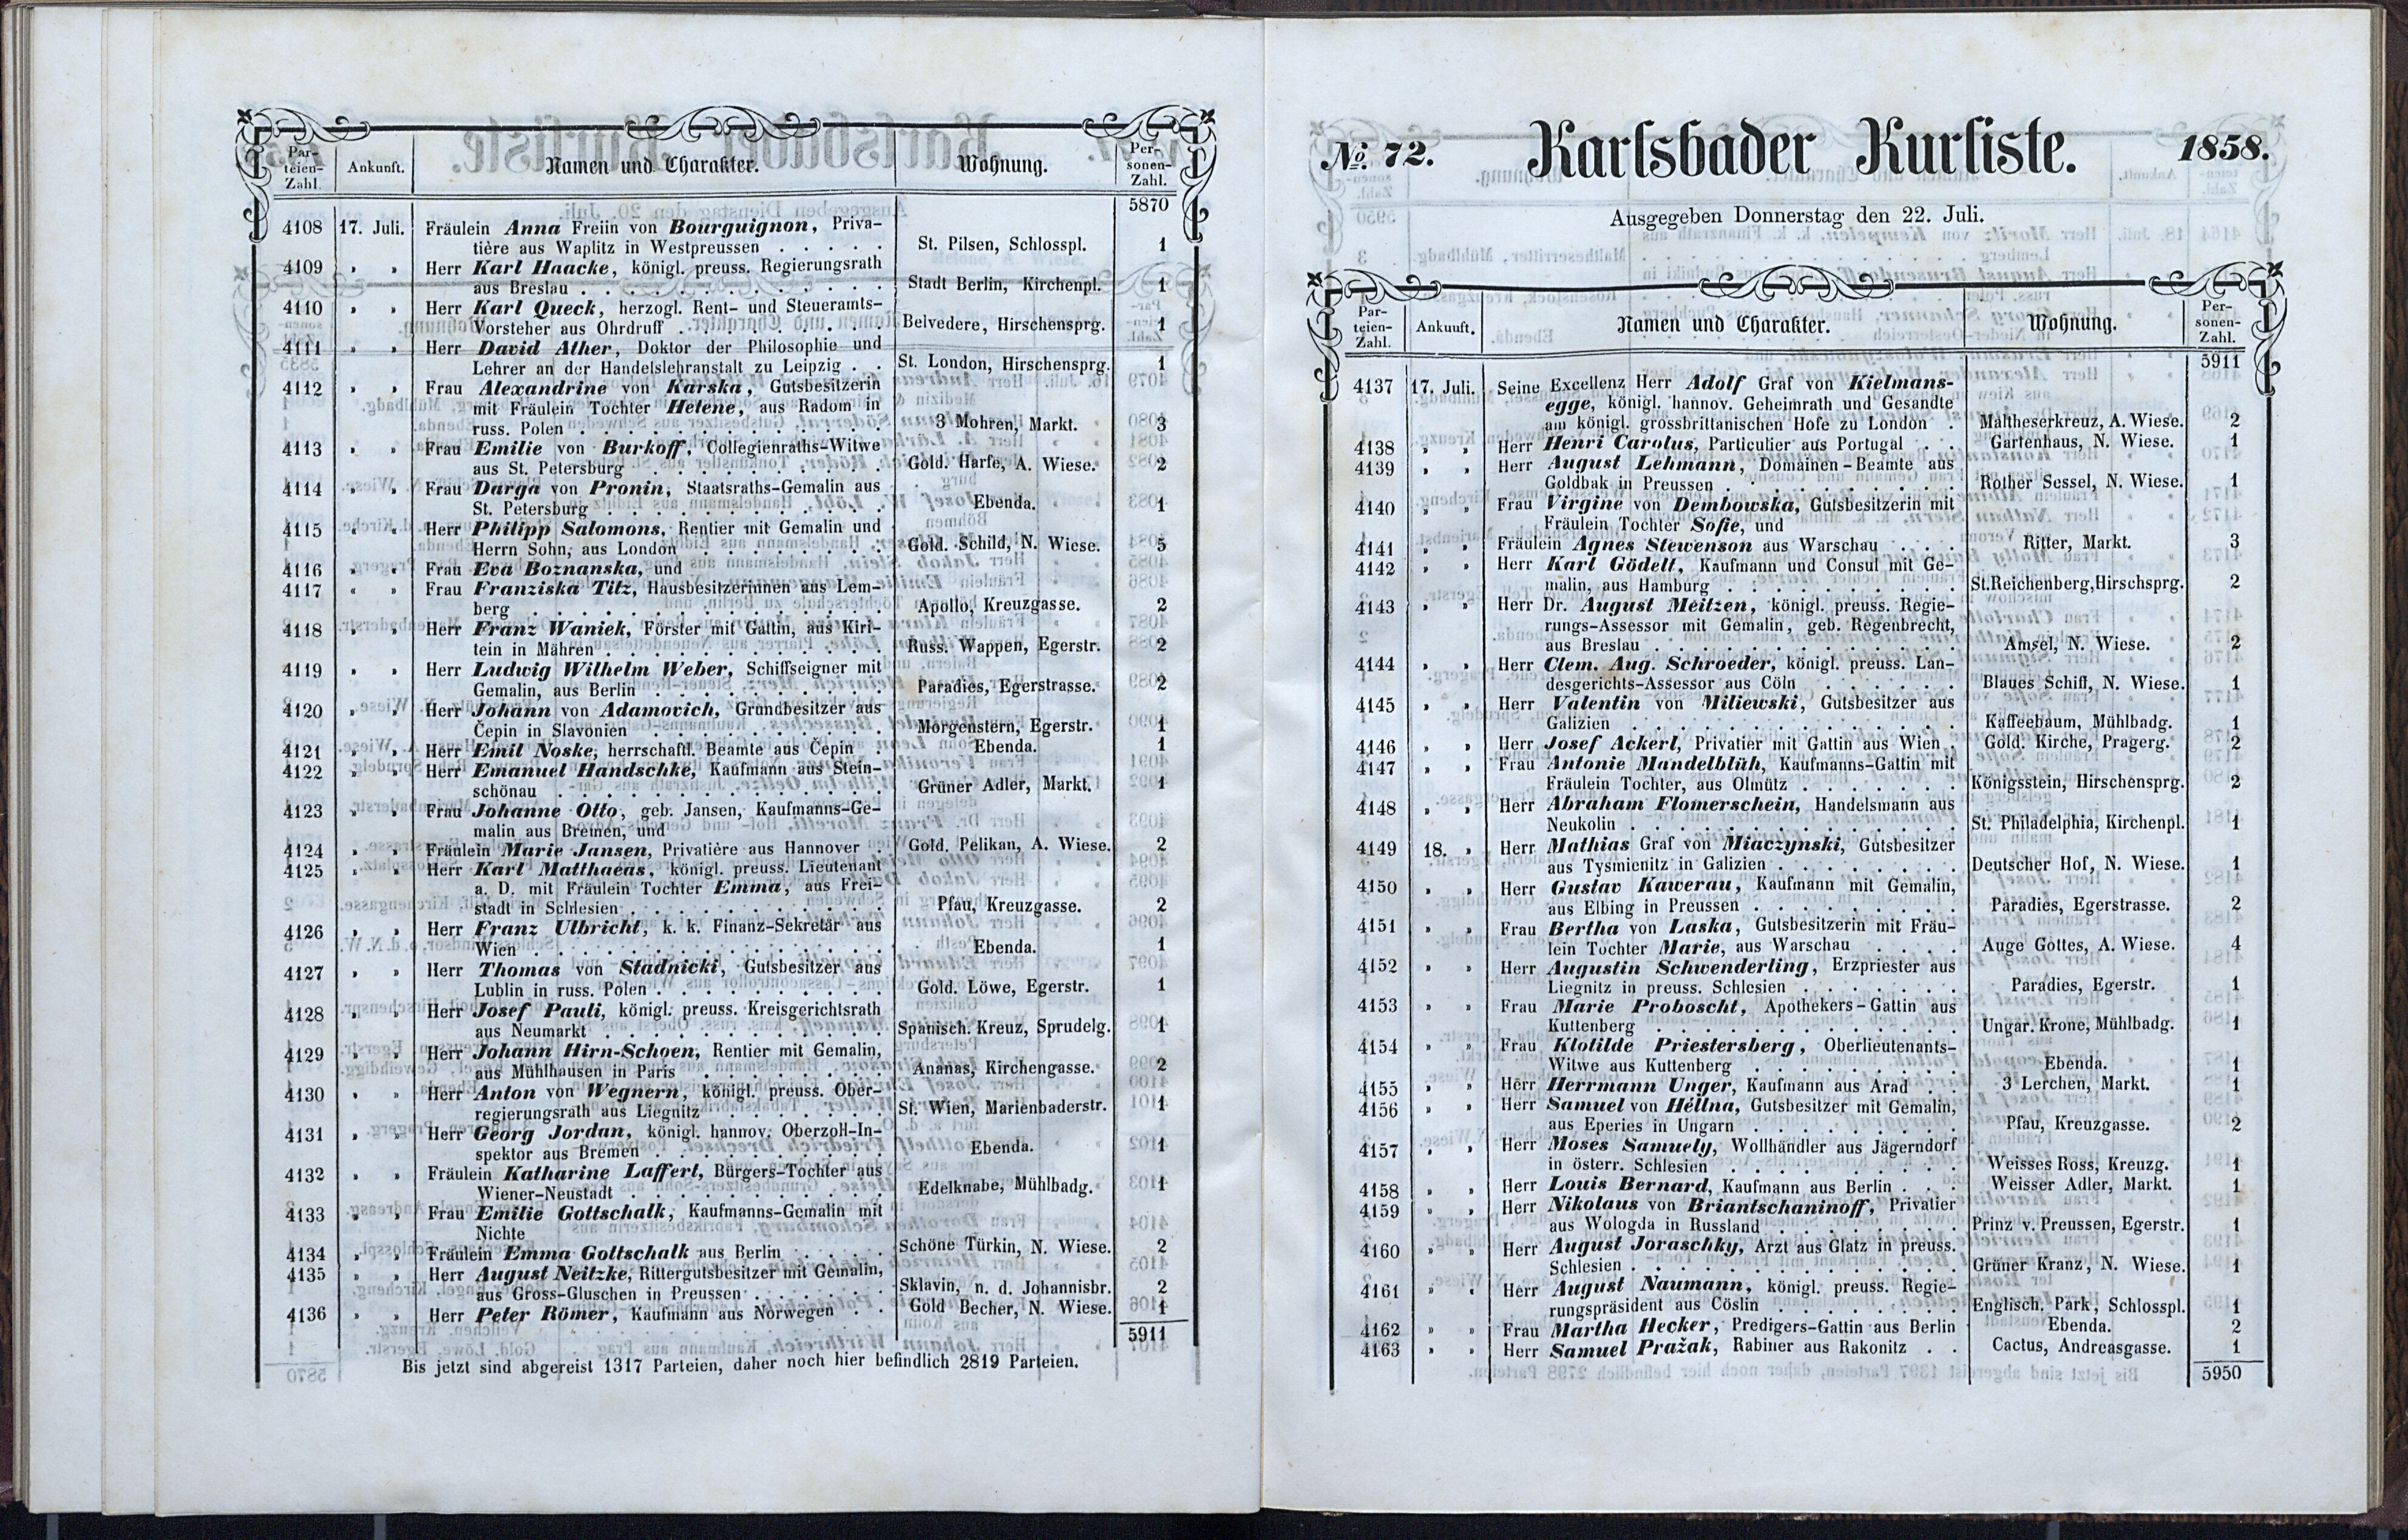 Par-
teien-
Zahl
Ankunft.
Namen und Charakter.
Wohnung.
Per-
sonen-
Zahl.
5870
4108 17. Juli. Fräulein Anna Freiin von Bourguignon, Priva-
tière aus Waplitz in Westpreussen . . . . . St. Pilsen, Schlosspl. 1
4109 » » Herr Karl Haacke, königl. preuss. Regierungsrath
aus Breslau . . . . . Stadt Berlin, Kirchenpl. 1
4110 » » Herr Karl Queck, herzogl. Rent- und Steueramts-
Vorsteher aus Ohrdruff . . . . . Belvedere, Hirschensprg. 1
4111 » » Herr David Ather, Doktor der Philosophie und
Lehrer an der Handelslehranstalt zu Leipzig . . St. London, Hirschensprg. 1
4112 » » Frau Alexandrine von Karska, Gutsbesitzerin
mit Fräulein Tochter Helene, aus Radom in
russ. Polen . . . . . 3 Mohren, Markt. 3
4113 » » Frau Emilie von Burkoff, Collegienraths-Witwe
aus St. Petersburg . . . . . Gold. Harfe, A. Wiese. 2
4114 » » Frau Darga von Pronin, Staatsraths-Gemalin aus
St. Petersburg . . . . . Ebenda. 1
4115 « « Herr Philipp Salomons, Rentier mit Gemalin und
Herrn Sohn, aus London . . . . . Gold. Schild, N. Wiese. 5
4116 » » Frau Eva Boznanska, und
4117 « » Frau Franziska Titz, Hausbesitzerinnen aus Lem-
berg . . . . . Apollo, Kreuzgasse. 2
4118 » » Herr Franz Waniek, Förster mit Gattin, aus Kiri-
tein in Mähren . . . . . Russ. Wappen, Egerstr. 2
4119 » » Herr Ludwig Wilhelm Weber, Schiffseigner mit
Gemalin, aus Berlin . . . . . Paradies, Egerstrasse. 2
4120 » » Herr Johann von Adamovich, Grundbesitzer aus
Čepin in Slavonien . . . . . Morgenstern, Egerstr. 1
4121 » » Herr Emil Noske, herrschaftl. Beamte aus Čepin . Ebenda. 1
4122 » » Herr Emanuel Handschke, Kaufmann aus Stein-
schönau . . . . . Grüner Adler, Markt. 1
4123 » » Frau Johanne Otto, geb. Jansen, Kaufmanns-Ge-
malin aus Bremen, und
4124 » » Fräulein Marie Jansen, Privatière aus Hannover . Gold. Pelikan, A. Wiese. 2
4125 » » Herr Karl Matthaeas, königl. preuss. Lieutenant
a. D. mit Fräulein Tochter Emma, aus Frei-
stadt in Schlesien . . . . . Pfau, Kreuzgasse. 2
4126 » » Herr Franz Ulbricht, k. k. Finanz-Sekretär aus
Wien . . . . . Ebenda. 1
4127 » » Herr Thomas von Stadnicki, Gutsbesitzer aus
Lublin in russ. Polen . . . . . Gold. Löwe, Egerstr. 1
4128 » » Herr Josef Pauli, königl. preuss. Kreisgerichtsrath
aus Neumarkt . . . . . Spanisch. Kreuz, Sprudelg. 1
4129 » » Herr Johann Hirn-Schoen, Rentier mit Gemalin,
aus Mühlhausen in Paris . . . . . Ananas, Kirchengasse. 2
4130 » » Herr Anton von Wegnern, königl. preuss. Ober-
regierungsrath aus Liegnitz . . . . . St. Wien, Marienbaderstr. 1
4131 » » Herr Georg Jordan, königl. hannov. Oberzoll-In-
spektor aus Bremen . . . . . Ebenda. 1
4132 » » Fräulein Katharine Laffert, Bürgers-Tochter aus
Wiener-Neustadt . . . . . Edelknabe, Mühlbadg. 1
4133 » » Frau Emilie Gottschalk, Kaufmanns-Gemalin mit
Nichte
4134 » » Fräulein Emma Gottschalk aus Berlin . . . . Schöne Türkin, N. Wiese. 2
4135 » » Herr August Neitzke, Rittergutsbesitzer mit Gemalin,
aus Gross-Gluschen in Preussen . . . . . Sklavin, n. d. Johannisbr. 2
4136 » » Herr Peter Römer, Kaufmann aus Norwegen . . Gold Becher, N. Wiese. 1
5911
Bis jetzt sind abgereist 1317 Parteien, daher noch hier befindlich 2819 Parteien.
No. 72. Karlsbader Kurliste. 1858.
Ausgegeben Donnerstag den 22. Juli.
Par-
teien-
Zahl.
Ankunft.
Namen und Charakter.
Wohnung.
Per-
sonen-
Zahl.
5911
4137 17. Juli. Seine Excellenz Herr Adolf Graf von Kielmans-
egge, königl. hannov. Geheimrath und Gesandte
am königl. grossbrittanischen Hofe zu London . Maltheserkreuz, A. Wiese. 2
4138 » » Herr Henri Carolus, Particulier aus Portugal . . Gartenhaus, N. Wiese. 1
4139 » » Herr August Lehmann, Domainen-Beamte aus
Goldbak in Preussen . . . . . Rother Sessel, N. Wiese. 1
4140 » » Frau Virgine von Dembowska, Gutsbesitzerin mit
Fräulein Tochter Sofie, und
4141 » » Fräulein Agnes Stewenson aus Warschau . . . Ritter, Markt. 3
4142 » » Herr Karl Gödelt, Kaufmann und Consul mit Ge-
malin, aus Hamburg . . . . . St. Reichenberg, Hirschsprg. 2
4143 » » Herr Dr. August Meitzen, königl. preuss. Regie-
rungs-Assessor mit Gemalin, geb. Regenbrecht,
aus Breslau . . . . . Amsel, N. Wiese. 2
4144 » » Herr Clem. Aug. Schroeder, königl. preuss. Lan-
desgerichts-Assessor aus Cöln . . . . . Blaues Schiff, N. Wiese. 1
4145 » » Herr Valentin von Miliewski, Gutsbesitzer aus
Galizien . . . . . Kaffeebaum, Mühlbadg. 1
4146 » » Herr Josef Ackerl, Privatier mit Gattin aus Wien . Gold. Kirche, Pragerg. 2
4147 » » Frau Antonie Mandelblüh, Kaufmanns-Gattin mit
Fräulein Tochter, aus Olmütz . . . . . Königsstein, Hirschensprg. 2
4148 » » Herr Abraham Flomerschein, Handelsmann aus
Neukolin . . . . . St. Philadelphia, Kirchenpl. 1
4149 18. » Herr Mathias Graf von Miaczynski, Gutsbesitzer
aus Tysmienitz in Galizien . . . . . Deutscher Hof, N. Wiese. 1
4150 » » Herr Gustav Kawerau, Kaufmann mit Gemalin,
aus Elbing in Preussen . . . . . Paradies, Egerstrasse. 2
4151 » » Frau Bertha von Laska, Gutsbesitzerin mit Fräu-
lein Tochter Marie, aus Warschau . . . . Auge Gottes, A. Wiese. 4
4152 » » Herr Augustin Schwenderling, Erzpriester aus
Liegnitz in preuss. Schlesien . . . . . Paradies, Egerstr. 1
4153 » » Frau Marie Proboscht, Apothekers-Gattin aus
Kuttenberg . . . . . Ungar. Krone, Mühlbadg. 1
4154 » » Frau Klotilde Priestersberg, Oberlieutenants-
Witwe aus Kuttenberg . . . . . Ebenda. 1
4155 » » Herr Herrmann Unger, Kaufmann aus Arad . . 3 Lerchen, Markt. 1
4156 » » Herr Samuel von Héllna, Gutsbesitzer mit Gemalin,
aus Eperies in Ungarn . . . . . Pfau, Kreuzgasse. 2
4157 » » Herr Moses Samuely, Wollhändler aus Jägerndorf
in österr. Schlesien . . . . . Weisses Ross, Kreuzg. 1
4158 » » Herr Louis Bernard, Kaufmann aus Berlin . . . Weisser Adler, Markt. 1
4159 » » Herr Nikolaus von Briantschaninoff, Privatier
aus Wologda in Russland . . . . . Prinz v. Preussen, Egerstr. 1
4160 » » Herr August Joraschky, Arzt aus Glatz in preuss.
Schlesien . . . . . Grüner Kranz, N. Wiese. 1
4161 » « Herr August Naumann, königl. preuss. Regie-
rungspräsident aus Cöslin . . . . . Englisch. Park, Schlosspl. 1
4162 » » Frau Martha Hecker, Predigers-Gattin aus Berlin Ebenda. 2
4163 » » Herr Samuel Pražak, Rabiner aus Rakonitz . . Cactus, Andreasgasse. 1
5950